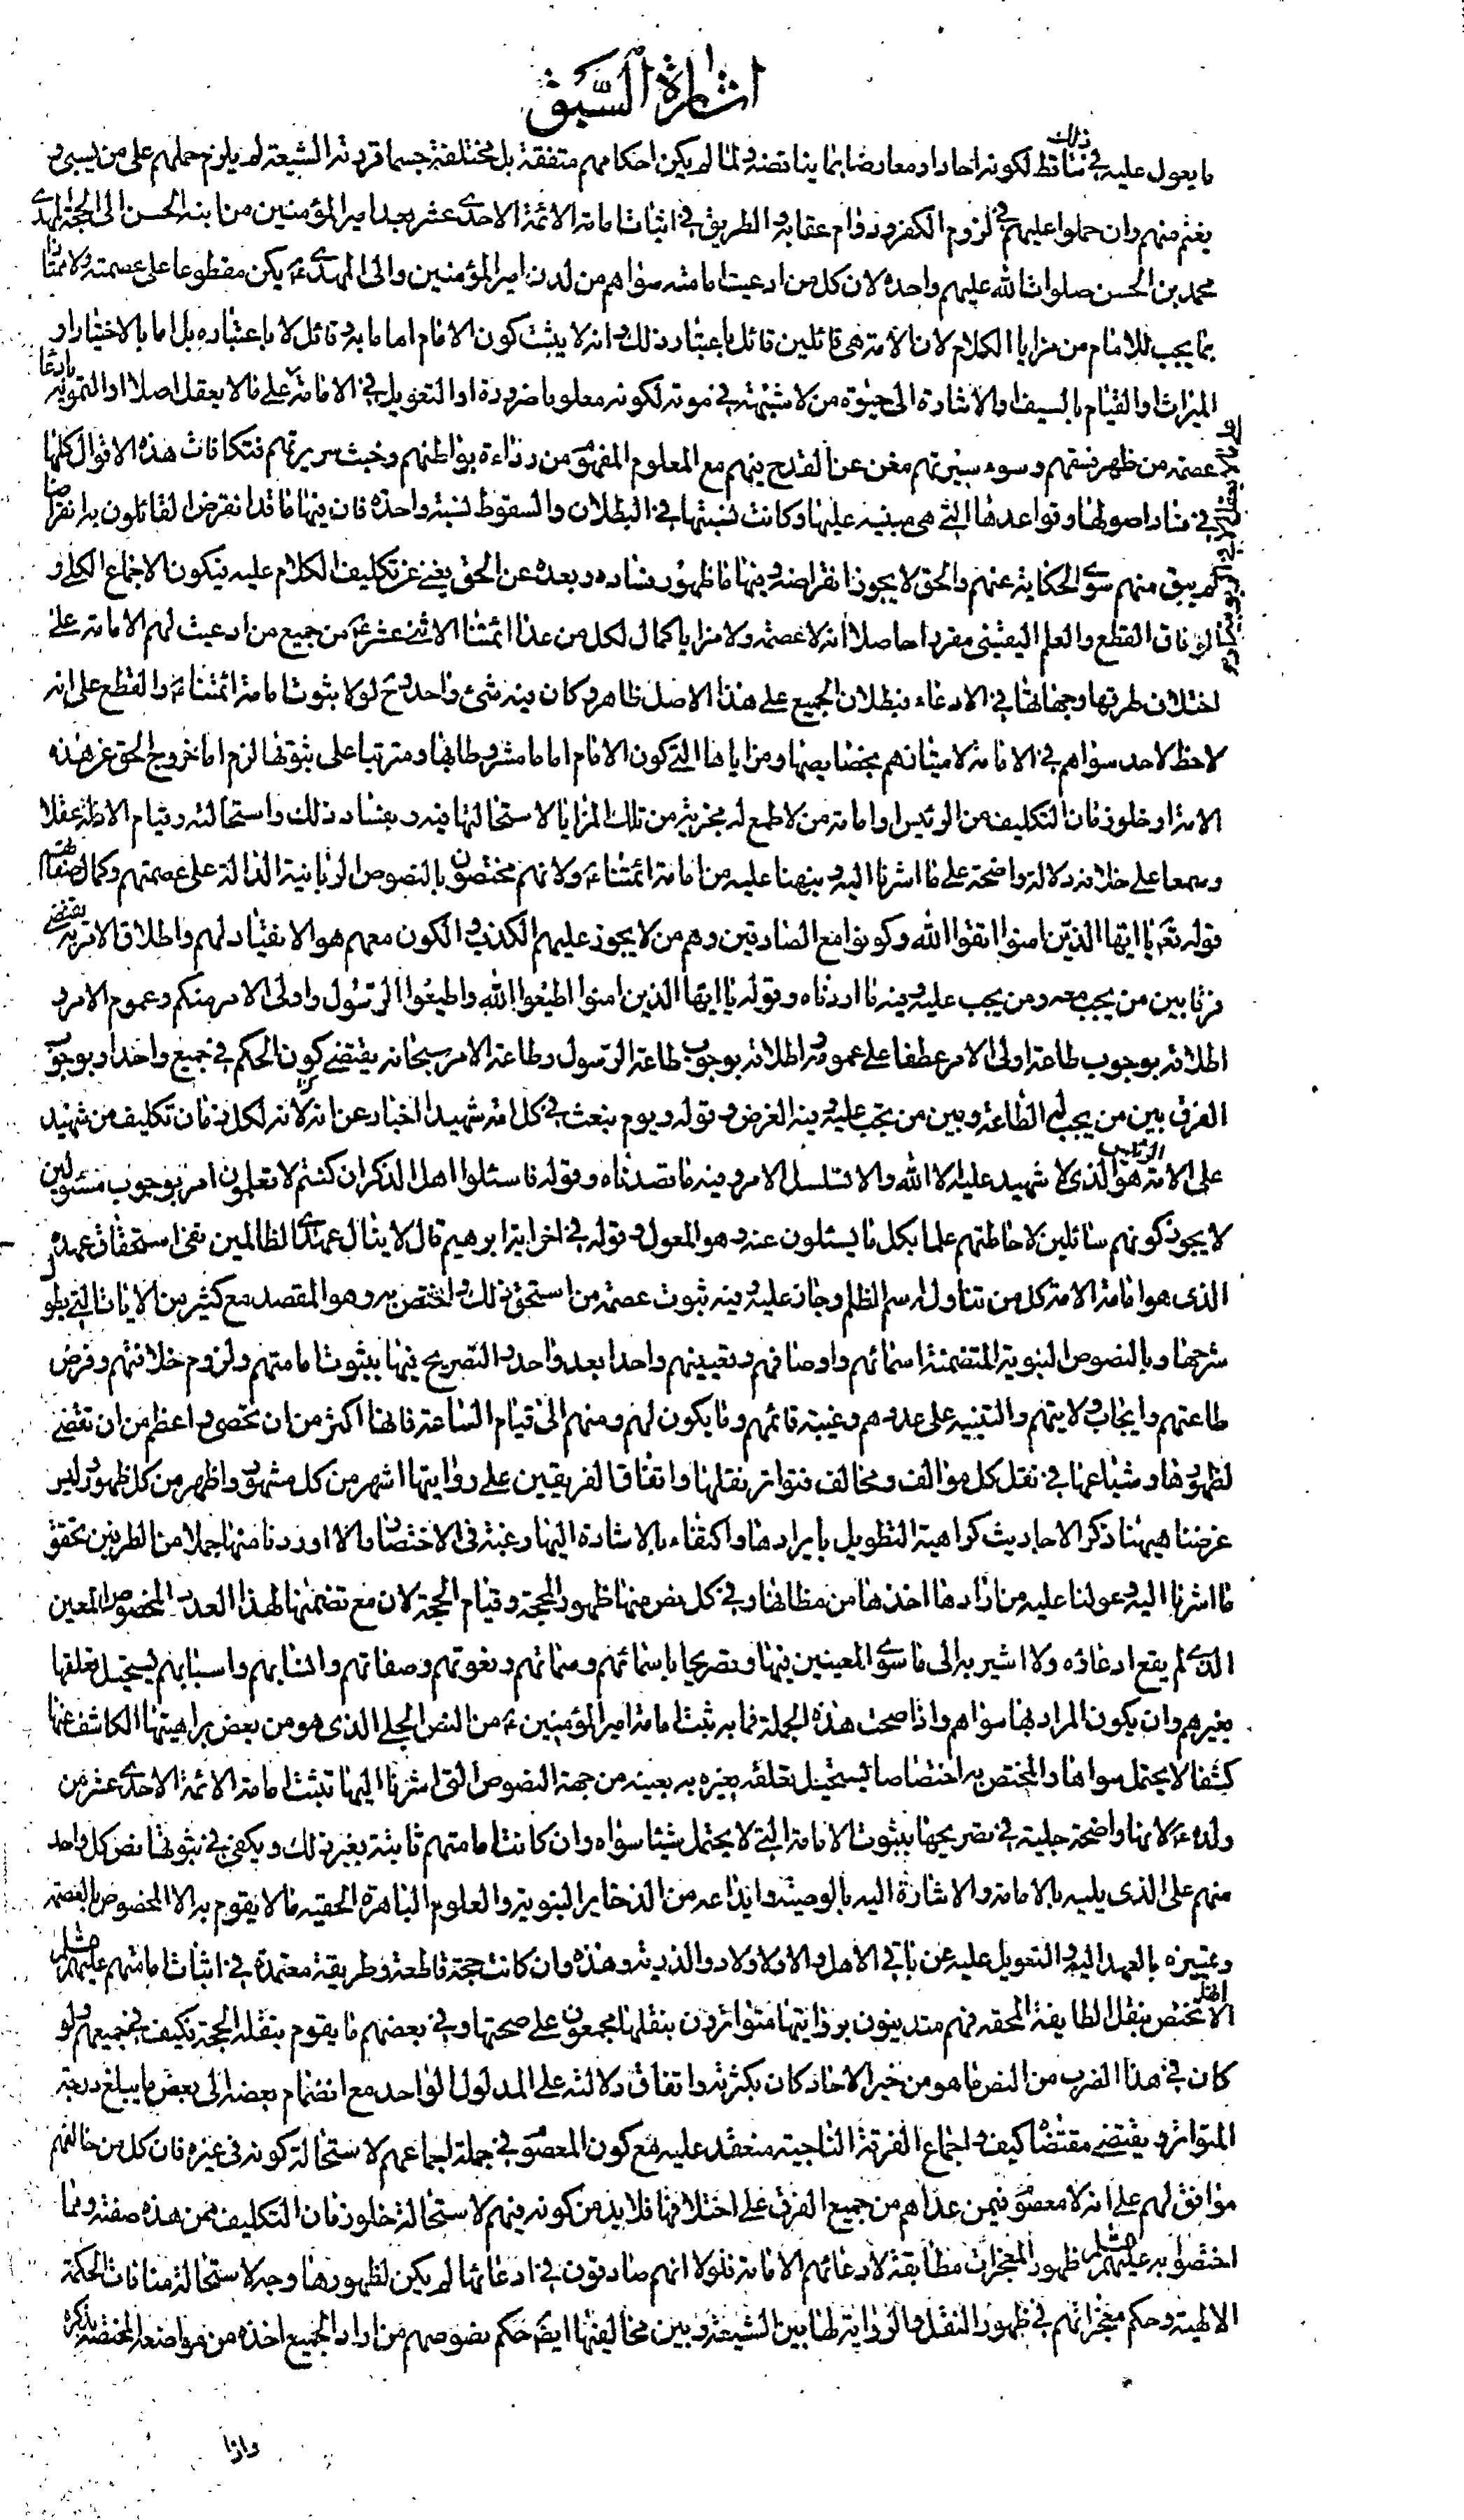 اشارة السبق
ما يعول عليه في ذلك تساقط لكونه احادا ومعارضا بما يناقضه ولما لم يكن احكامهم متفقة بل مختلفة حسبما قررته الشيعة لم يلزم حملهم على من يسبى و
يغنم منهم وان حملوا عليهم في لزوم الكفر ودوام عقابه والطريق في اثبات امامة الائمة الاحدى عشر بعد امير المؤمنين من ابنه الحسن الى الحجة المهدى
محمد بن الحسن صلوات الله عليهم واحدة لان كل من ادعيت امامته سواهم من لدن امير المؤمنين والى المهدى ع لم يكن مقطوعا على عصمته ولا ممتازا
بما يجب للامام من مزايا الكلام لان الامة هى قائلين قائل باعتبار ذلك وانه لا يثبت كون الامام اماما به وقائل لا باعتباره بل اما بالاختيار او
الميراث او القيام بالسيف او الاشارة الى حيوة من لا شبهة في موته لكونه معلوما ضرورة او التعويل في الامامة على ما لا يعقل اصلا او التمويه بادعا
عصمة من ظهر فسقهم وسوء سيرتهم مغن عن القدح فيهم مع المعلوم المفهوم من رداءة بواطنهم وخبث سريرتهم فتكافات هذه الاقوال كلها
في فساد اصولها وقواعدها التى هى مبنيه عليها وكانت نسبتها في البطلان والسقوط نسبة واحدة فان فيها ما قد انقرض القائلون به انقراضا
لم يبق منهم سوى الحكاية عنهم والحق لا يجوز انقراضه وفيها ما ظهور فساده وبعده عن الحق يغنى عن تكليف الكلام عليه فيكون الاجماع الكلى و
الوفاق القطع والعلم اليقينى مفردا حاصلا انه لا عصمة ولا مزايا كمال لكل من عدا ائمتنا الاثنى عشر ع من جميع من ادعيت لهم الامامة على
اختلاف طرقها وجهاتها في الادعاء فبطلان الجميع على هذا الاصل ظاهر وكان فيه شئ واحد وح لولا ثبوت امامة ائمتنا ع والقطع على انه
لاحظ لاحد سواهم في الامامة لامتيازهم بخصايصها ومزاياها التى كون الامام اماما مشروطا بها ومترتبا على ثبوتها لزم اما خروج الحق عن هذه
الامة او خلو زمان التكليف من الرئيس او امامة من لا طمع له بمزية من تلك المزايا لاستحالتها فيه وبفساد ذلك واستحالته وقيام الادلة عقلا
وسمعا على خلافه دلالة واضحة على ما اشرنا اليه ونبهنا عليه من امامة ائمتنا ع ولانهم مختصون بالنصوص الربانية الدالة على عصمتهم وكمال صفاتهم
قوله تع يا ايها الذين امنوا اتقوا الله وكونوا مع الصادقين وهم من لا يجوز عليهم الكذب والكون معهم هو الانقياد لهم واطلاق الامر به يقتضى
فرقا بين من يجب معه ومن يجب عليه وفيه ما اردناه وقوله يا ايها الذين امنوا اطيعوا الله واطيعوا الرسول واولى الامر منكم وعموم الامر و
اطلاقه بوجوب طاعة اولى الامر عطفا على عمومه واطلاقه بوجوب طاعة الرسول وطاعة الامر سبحانه يقتضى كون الحكم في جميع واحدا وبوجوب
الفرق بين من يجب له الطاعة وبين من تجب عليه وفيه الغرض وقوله ويوم نبعث في كل امة شهيدا اخبار عن انه لا بد لكل زمان تكليف من شهيد
على الامة هو الرئيس الذى لا شهيد عليه الا الله والا لتسلسل الامر وفيه ما قصدناه وقوله فاسئلوا اهل الذكر ان كنتم لا تعلمون امر بوجوب مسئولين
لا يجوز كونهم سائلين لاحاطتهم علما بكل ما يسئلون عنه وهو المعول وقوله في اخر اية ابرهيم قال لا ينال عهدى الظالمين نفى استحقاق عهده
الذى هو امامة الامة كل من تناوله اسم الظلم وجاز عليه وفيه ثبوت عصمة من استحق ذلك واختص به وهو المقصد مع كثير من الايات التى يطول
شرحها وبالنصوص النبوية المتضمنة اسمائهم واوصافهم وتعيينهم واحدا بعد واحد والتصريح فيها بثبوت امامتهم ولزوم خلافتهم وفرض
طاعتهم وايجاب ولايتهم والتنبيه على عددهم وغيبة قائمهم وما يكون لهم ومنهم الى قيام الساعة فانها اكثر من ان تحصى واعظم من ان تقضى
لظهورها وشياعها في نقل كل موالف ومخالف فتواتر نقلها واتفاق الفريقين على روايتها اشهر من كل مشهور واظهر من كل ظهور وليس
غرضنا هيهنا ذكر الاحاديث كراهية التطويل بايرادها واكتفاء بالاشارة اليها ورغبة في الاختصار والا اوردنا منها جملا من الطريقين تحقق
ما اشرنا اليه وعولنا عليه من ارادها اخذها من مظانها وفي كل نص منها ظهور الحجة وقيام الحجة لان مع تضمنها لهذا العدد المخصوص المعين
الذى لم يقع ادعاؤه ولا اشير به الى ما سوى المعينين فيها وتصريحا باسمائهم وسماتهم ونعوتهم وصفاتهم وانسابهم واسبابهم يستحيل تعلقها
بغيرهم وان يكون المراد بها سواهم واذا صحت هذه الجملة فما به ثبت امامة امير المؤمنين ع من النص الجلى الذى هو من بعض براهينها الكاشف عنها
كشفا لا يحتمل سواها والمختص به اختصاصا يستحيل تعلقه بغيره به بعينه من جهة النصوص التى اشرنا اليها تثبت امامة الائمة الاحدى عشر من
ولده ع لانها واضحة جلية في تصريحها بثبوت الامامة التى لا يحتمل شيئا سواه وان كانت امامتهم ثابتة بغير ذلك ويكفى في ثبوتها نص كل واحد
منهم على الذى يليه بالامامة والاشارة اليه بالوصية وايداعه من الذخاير النبوية والعلوم الباهرة الحقيه ما لا يقوم به الا المخصوص بالعصمة
وتمييزه بالعهد اليه والتعويل عليه عن باقى الاهل والاولاد والذرية وهذه وان كانت حجة قاطعة وطريقة معتمدة في اثبات امامتهم عليهم السلم
الا انها تختص بنقل الطايفة المحقه فهم متدينون بروايتها متواترون بنقلها مجمعون على صحتها وفي بعضهم ما يقوم بنقله الحجة فكيف في جميعهم ولو
كان في هذا الضرب من النص ما هو من خبر الاحاد كان بكثرته واتفاق دلالته على المدلول الواحد مع انضمام بعضه الى بعض ما يبلغ درجة
المتواتر ويقتضى مقتضاه كيف واجماع الفرقة الناجية منعقد عليه مع كون المعصوم في جملة اجماعهم لاستحالة كونه في غيره فان كل من خالفهم
موافق لهم على انه لا معصوم فيمن عداهم من جميع الفرق على اختلافها فلا بد من كونه فيهم لاستحالة خلو زمان التكليف ممن هذه صفته ومما
اختصوا به عليهم السلم ظهور المعجزات مطابقة لادعائهم الامامة فلولا انهم صادقون في ادعائها لم يكن لظهورها وجه لاستحالة منافات الحكمة
الالهية وحكم معجزاتهم في ظهور النقل والرواية لها بين الشيعة وبين مخالفيها ايض حكم نصوصهم من اراد الجميع اخذه من مواضعه المختصة بذكره
واذا